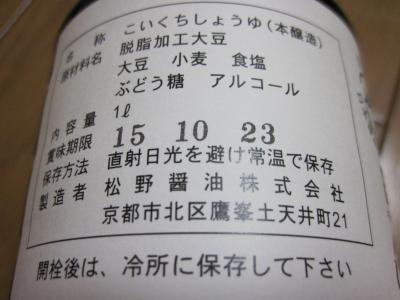 名称 こいくちしょうゆ(本醸造)
原材料名 脱脂加工大豆
大豆 小麦 食塩
ぶどう糖 アルコール
内容量 1ℓ
賞味期限 15 10 23
保存方法 直射日光を避け常温で保存
製造者 松野醤油株式会社
京都市北区鷹峯土天井町21
開栓後は、冷所に保存して下さい